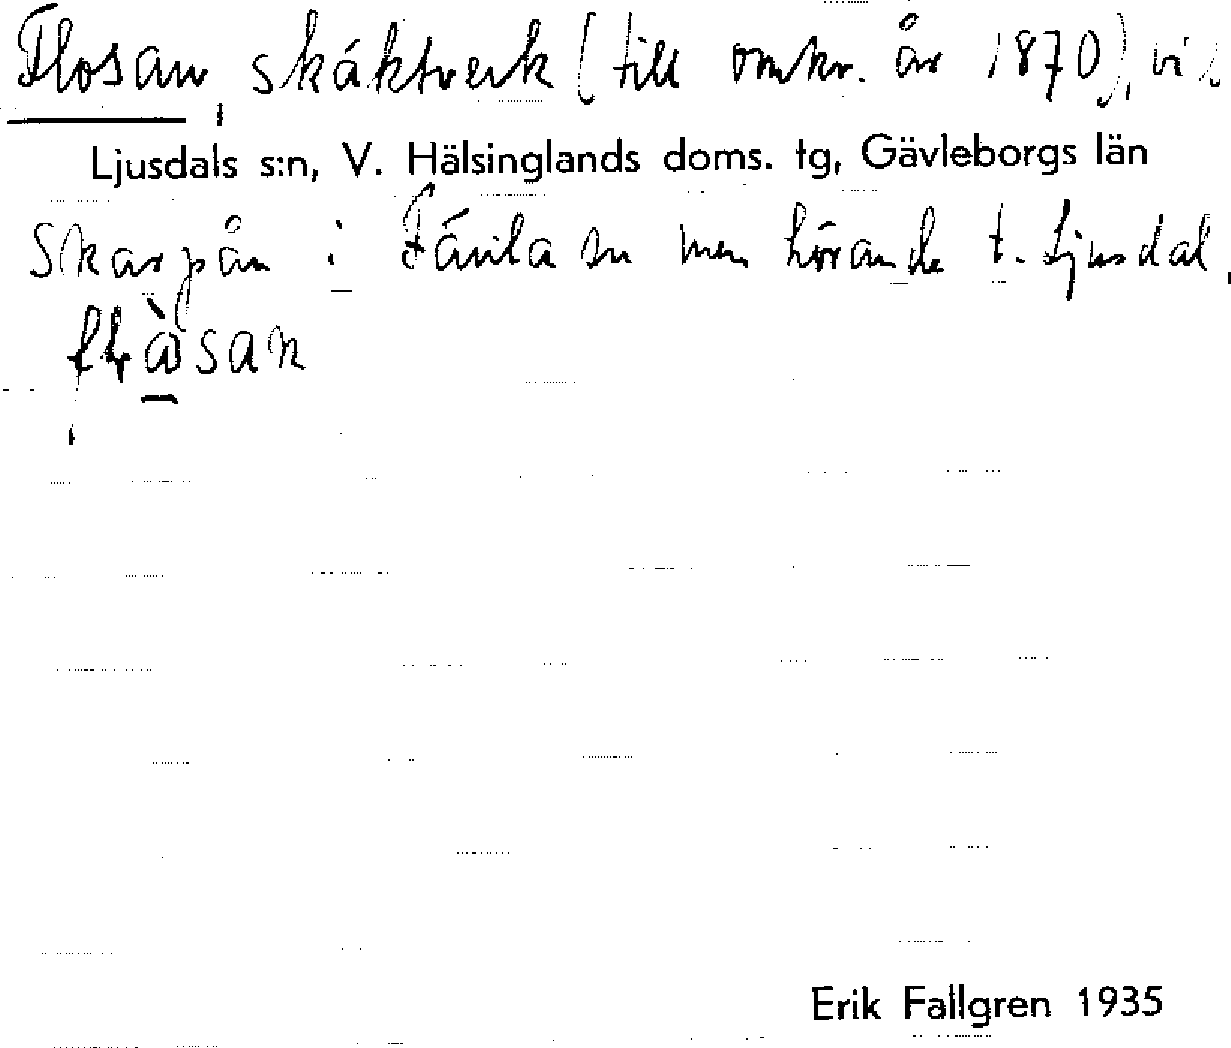 Flosan, skäktverk (till omkr. år 1870), vid
Ljusdals s:n, V. Hälsinglands doms. tg, Gävleborgs län
Skarpån i Färila sn men hörande t. Ljusdal.
Erik Fallgren 1935